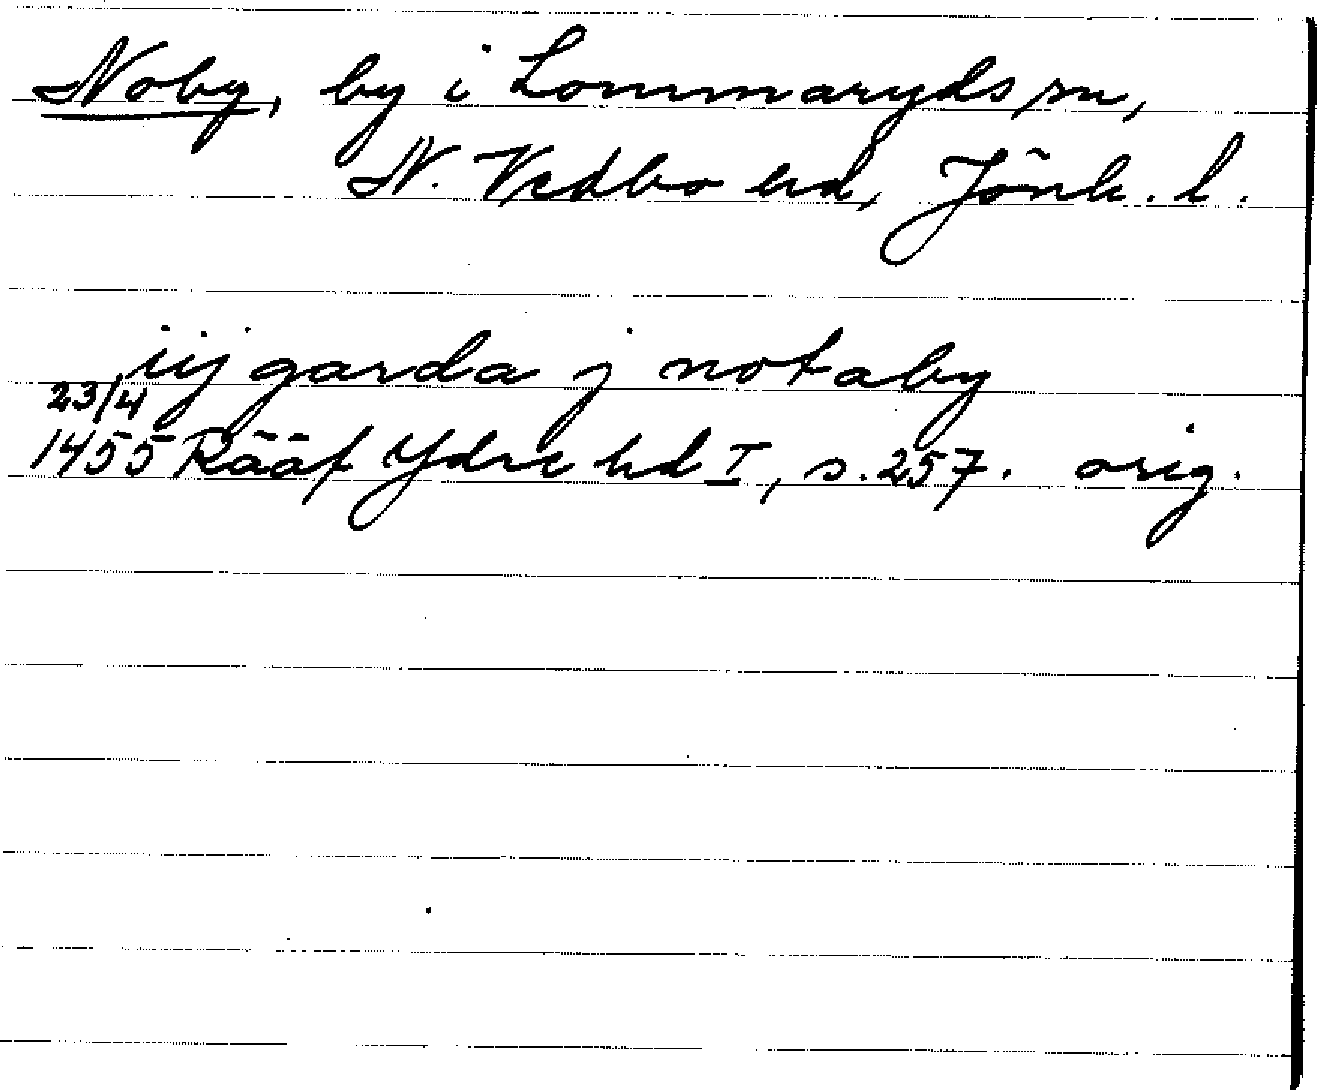 Noby, by i Lommaryds sn,
N. Vedbo hd, Jönk. l.
iij garda j notaby
23/4
1455 Rääf Ydre hd I, s. 257. orig.